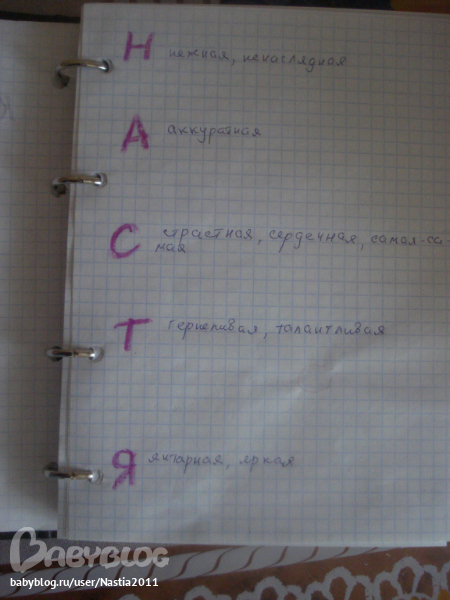 Н нежная, ненаглядная
А аккуратная
С страстная, сердечная, самая-са-
мая
Т терпеливая, талантливая
Я янтарная, яркая
BABYBLOG
babyblog.ru/user/Nastia2011